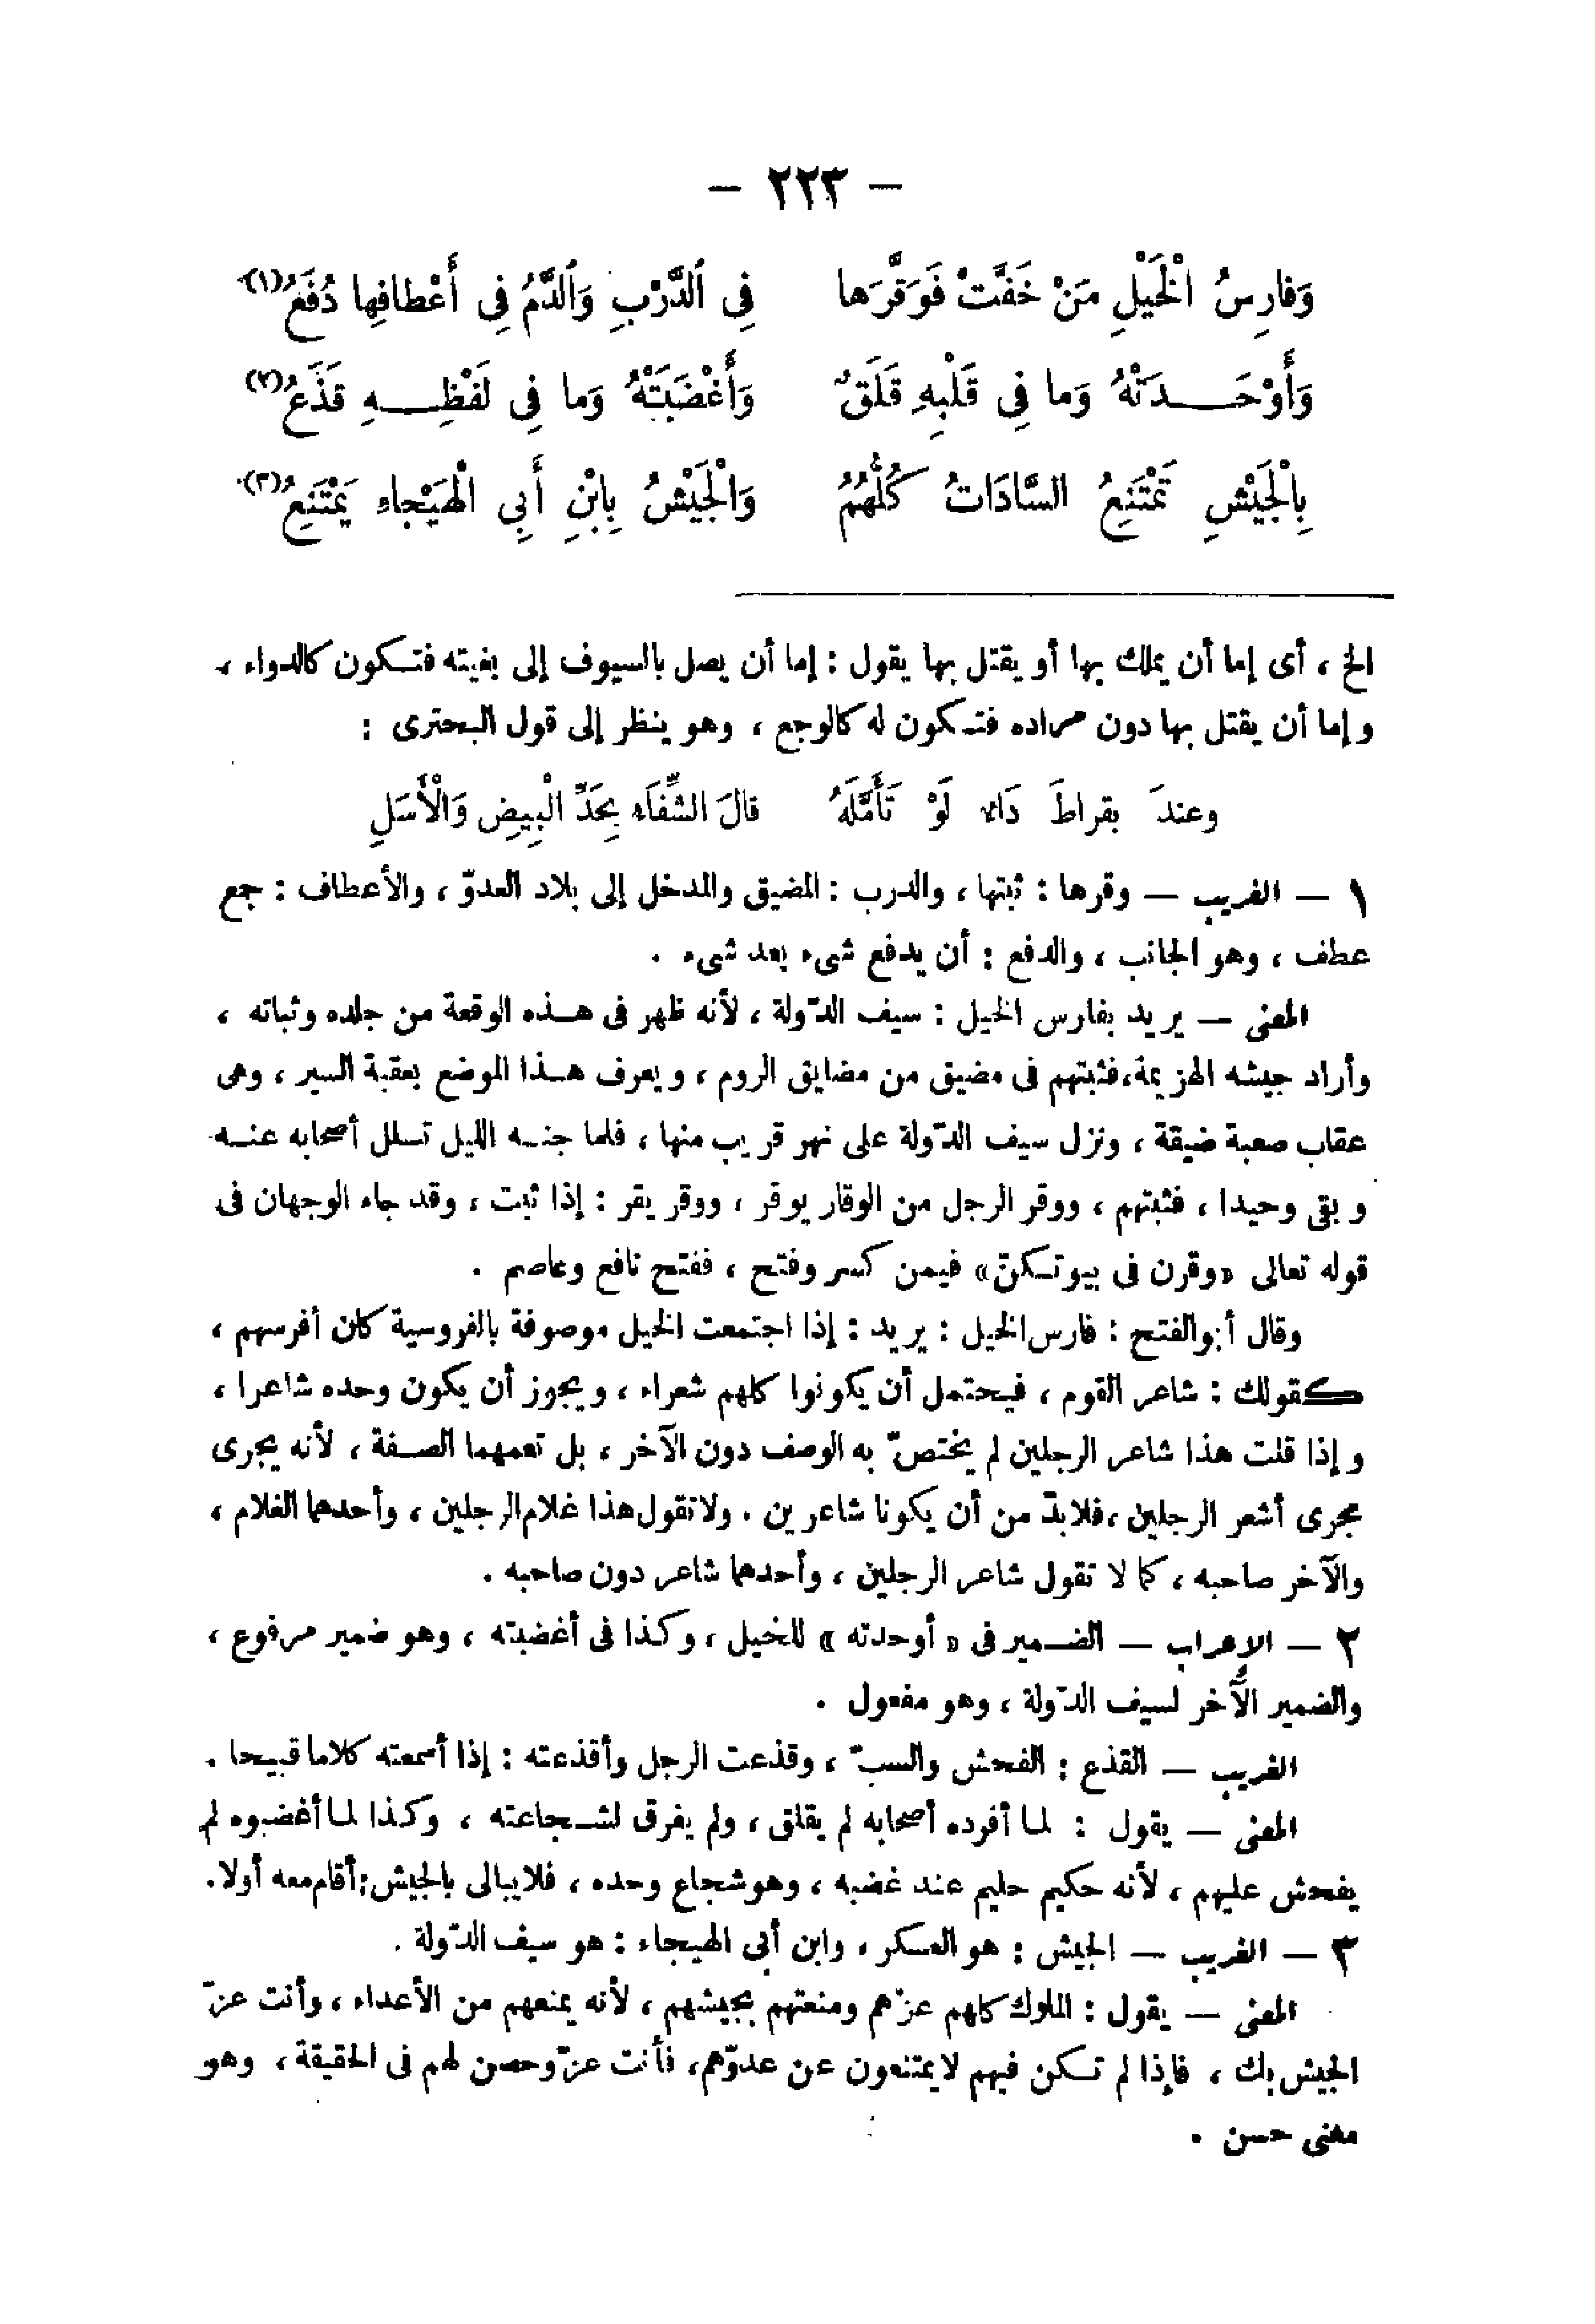 — ٢٢٣ —
وَفارِسُ الْخَيْلِ مَنْ خَفَّتْ فَوَقَّرَها فِي الدَّرْبِ وَالدَّمُ فِي أَعْطافِها دُفَعُ (١)
وَأَوْحَــدَتْهُ وَما فِي قَلْبِهِ قَلَقٌ وَأَغْضَبَتْهُ وَما فِي لَفْظِــهِ قَذَعُ (٢)
بِالْجَيْشِ تَمْتَنِعُ السَّادَاتُ كُلُّهُمُ وَالْجَيْشُ بِابْنِ أَبِي الْهَيْجاءِ يَمْتَنِعُ (٣)
الخ ، أى إما أن يملك بها أو يقتل بها يقول : إما أن يصل بالسيوف إلى بغيته فتكون كالدواء ،
وإما أن يقتل بها دون مراده فتكون له كالوجع ، وهو ينظر إلى قول البحترى :
وعندَ بقراطَ دَاء لَوْ تَأَمَّلَهُ قالَ الشِّفَاء بِحَدِّ الْبِيضِ وَالْأَسَلِ
١ — الغريب — وقرها : ثبتها ، والدرب : المضيق والمدخل إلى بلاد العدوّ ، والأعطاف : جمع
عطف ، وهو الجانب ، والدفع : أن يدفع شىء بعد شىء .
المعنى — يريد بفارس الخيل : سيف الدّولة ، لأنه ظهر فى هــذه الوقعة من جلده وثباته ،
وأراد جيشه الهزيمة ، فثبتهم فى مضيق من مضايق الروم ، ويعرف هــذا الموضع بعقبة السير ، وهى
عقاب صعبة ضيقة ، ونزل سيف الدّولة على نهر قريب منها ، فلما جنــه الليل تسلل أصحابه عنــه
وبقى وحيدا ، فثبتهم ، ووقر الرجل من الوقار يوقر ، ووقر يقر : إذا ثبت ، وقد جاء الوجهان فى
قوله تعالى «وقرن فى بيوتكنّ» فيمن كسر وفتح ، ففتح نافع وعاصم .
وقال أبو الفتح : فارس الخيل : يريد : إذا اجتمعت الخيل موصوفة بالفروسية كان أفرسهم ،
كقولك : شاعر القوم ، فيحتمل أن يكونوا كلهم شعراء ، ويجوز أن يكون وحده شاعرا ،
وإذا قلت هذا شاعر الرجلين لم يختصّ به الوصف دون الآخر ، بل تعمهما الصــفة ، لأنه يجرى
مجرى أشعر الرجلين ، فلابدّ من أن يكونا شاعرين . ولا تقول هذا غلام الرجلين ، وأحدهما الغلام ،
والآخر صاحبه ، كما لا تقول شاعر الرجلين ، وأحدهما شاعر دون صاحبه .
٢ — الإعراب — الضــمير فى « أوحدته » للخيل ، وكذا فى أغضبته ، وهو ضمير مرفوع ،
والضمير الآخر لسيف الدّولة ، وهو مفعول .
الغريب — القذع : الفحش والسبّ ، وقذعت الرجل وأقذعته : إذا أسمعته كلاما قبيحا .
المعنى — يقول : لما أفرده أصحابه لم يقلق ، ولم يفرق لشــجاعته ، وكذا لما أغضبوه لم
يفحش عليهم ، لأنه حكيم حليم عند غضبه ، وهو شجاع وحده ، فلا يبالى بالجيش : أقام معه أولا .
٣ — الغريب — الجيش : هو العسكر ، وابن أبى الهيجاء : هو سيف الدّولة .
المعنى — يقول : الملوك كلهم عزّهم ومنعتهم بجيشهم ، لأنه يمنعهم من الأعداء ، وأنت عزّ
الجيش بك ، فإذا لم تكن فيهم لا يمتنعون عن عدوّهم ، فأنت عزّ وحصن لهم فى الحقيقة ، وهو
معنى حسن .